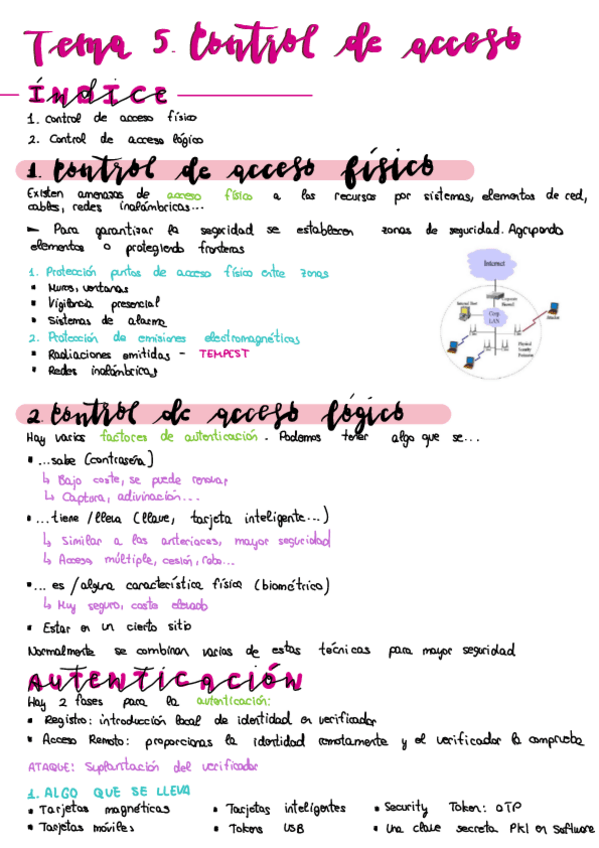 Tema 5. Control de acceso
ÍNDICE
1. Control de acceso físico
2. Control de acceso lógico
1. Control de acceso físico
Existen amenazas de acceso físico a los recursos por sistemas, elementos de red,
cables, redes inalámbricas...
► Para garantizar la seguridad se establecen zonas de seguridad. Agrupando
elementos o protegiendo fronteras
1. Protección puntos de acceso físico entre zonas
▪ Muros, ventanas
▪ Vigilancia presencial
▪ Sistemas de alarma
2. Protección de emisiones electromagnéticas
▪ Radiaciones emitidas - TEMPEST
▪ Redes inalámbricas
Internet
Corp
LAN
Physical
Security
Perimeter
2. Control de acceso lógico
Hay varios factores de autenticación. Podemos tener algo que se...
▪ ...sabe (contraseña)
↳ Bajo coste, se puede renovar
↳ Captura, adivinación...
▪ ...tiene/lleva (llave, tarjeta inteligente...)
↳ Similar a las anteriores, mayor seguridad
↳ Acceso múltiple, cesión, robo...
▪ ... es/alguna característica física (biométrico)
↳ Muy seguro, costo elevado
▪ Estar en un cierto sitio
Normalmente se combinan varias de estas técnicas para mayor seguridad
AUTENTICACIÓN
Hay 2 fases para la autenticación:
▪ Registro: introducción local de identidad en verificador
▪ Acceso Remoto: proporcionas la identidad remotamente y el verificador la comprueba
ATAQUE: Suplantación del verificador
1. ALGO QUE SE LLEVA
▪ Tarjetas magnéticas ▪ Tarjetas inteligentes ▪ Security Token: OTP
▪ Tarjetas móviles ▪ Tokens USB ▪ Una clave secreta PKI en software